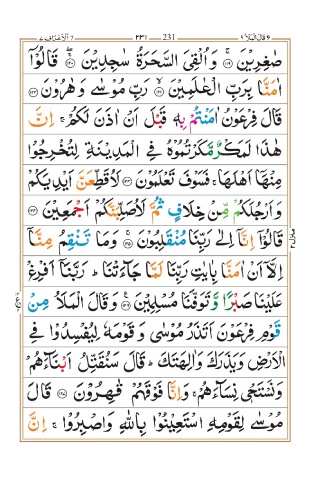 قال الملا ٩ ٢٣١ 231 الاعراف ٧
صٰغِرِيْنَ ﴿١١٩﴾ وَاُلْقِىَ السَّحَرَةُ سٰجِدِيْنَ ﴿١٢٠﴾ قَالُوْٓا
اٰمَنَّا بِرَبِّ الْعٰلَمِيْنَ ﴿١٢١﴾ رَبِّ مُوْسٰى وَهٰرُوْنَ ﴿١٢٢﴾
قَالَ فِرْعَوْنُ اٰمَنْتُمْ بِهٖ قَبْلَ اَنْ اٰذَنَ لَكُمْ ۚ اِنَّ
هٰذَا لَمَكْرٌ مَّكَرْتُمُوْهُ فِى الْمَدِيْنَةِ لِتُخْرِجُوْا
مِنْهَآ اَهْلَهَا ۚ فَسَوْفَ تَعْلَمُوْنَ ﴿١٢٣﴾ لَاُقَطِّعَنَّ اَيْدِيَكُمْ
وَاَرْجُلَكُمْ مِّنْ خِلَافٍ ثُمَّ لَاُصَلِّبَنَّكُمْ اَجْمَعِيْنَ ﴿١٢٤﴾
قَالُوْٓا اِنَّآ اِلٰى رَبِّنَا مُنْقَلِبُوْنَ ﴿١٢٥﴾ وَمَا تَنْقِمُ مِنَّآ
اِلَّآ اَنْ اٰمَنَّا بِاٰيٰتِ رَبِّنَا لَمَّا جَآءَتْنَا ؕ رَبَّنَآ اَفْرِغْ
عَلَيْنَا صَبْرًا وَّتَوَفَّنَا مُسْلِمِيْنَ ﴿١٢٦﴾ وَقَالَ الْمَلَاُ مِنْ
قَوْمِ فِرْعَوْنَ اَتَذَرُ مُوْسٰى وَقَوْمَهٗ لِيُفْسِدُوْا فِى
الْاَرْضِ وَيَذَرَكَ وَاٰلِهَتَكَ ؕ قَالَ سَنُقَتِّلُ اَبْنَآءَهُمْ
وَنَسْتَحْىٖ نِسَآءَهُمْ ۚ وَاِنَّا فَوْقَهُمْ قٰهِرُوْنَ ﴿١٢٧﴾ قَالَ
مُوْسٰى لِقَوْمِهِ اسْتَعِيْنُوْا بِاللّٰهِ وَاصْبِرُوْا ۚ اِنَّ